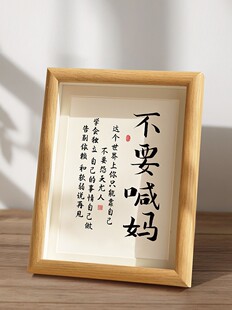 不要喊妈
这个世界上你只能靠自己
不要怨天尤人
学会独立 自己的事情自己做
告别依赖 和软弱说再见